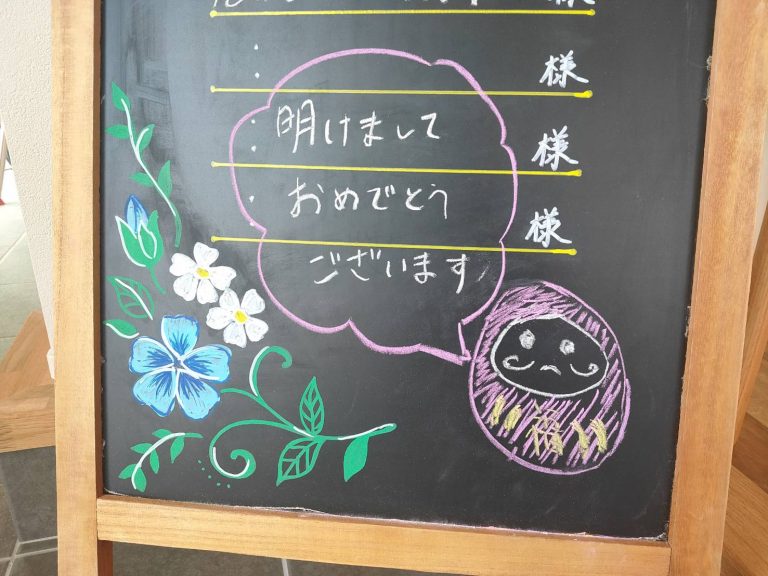 様
様
明けまして
様
おめでとう
様
ございます